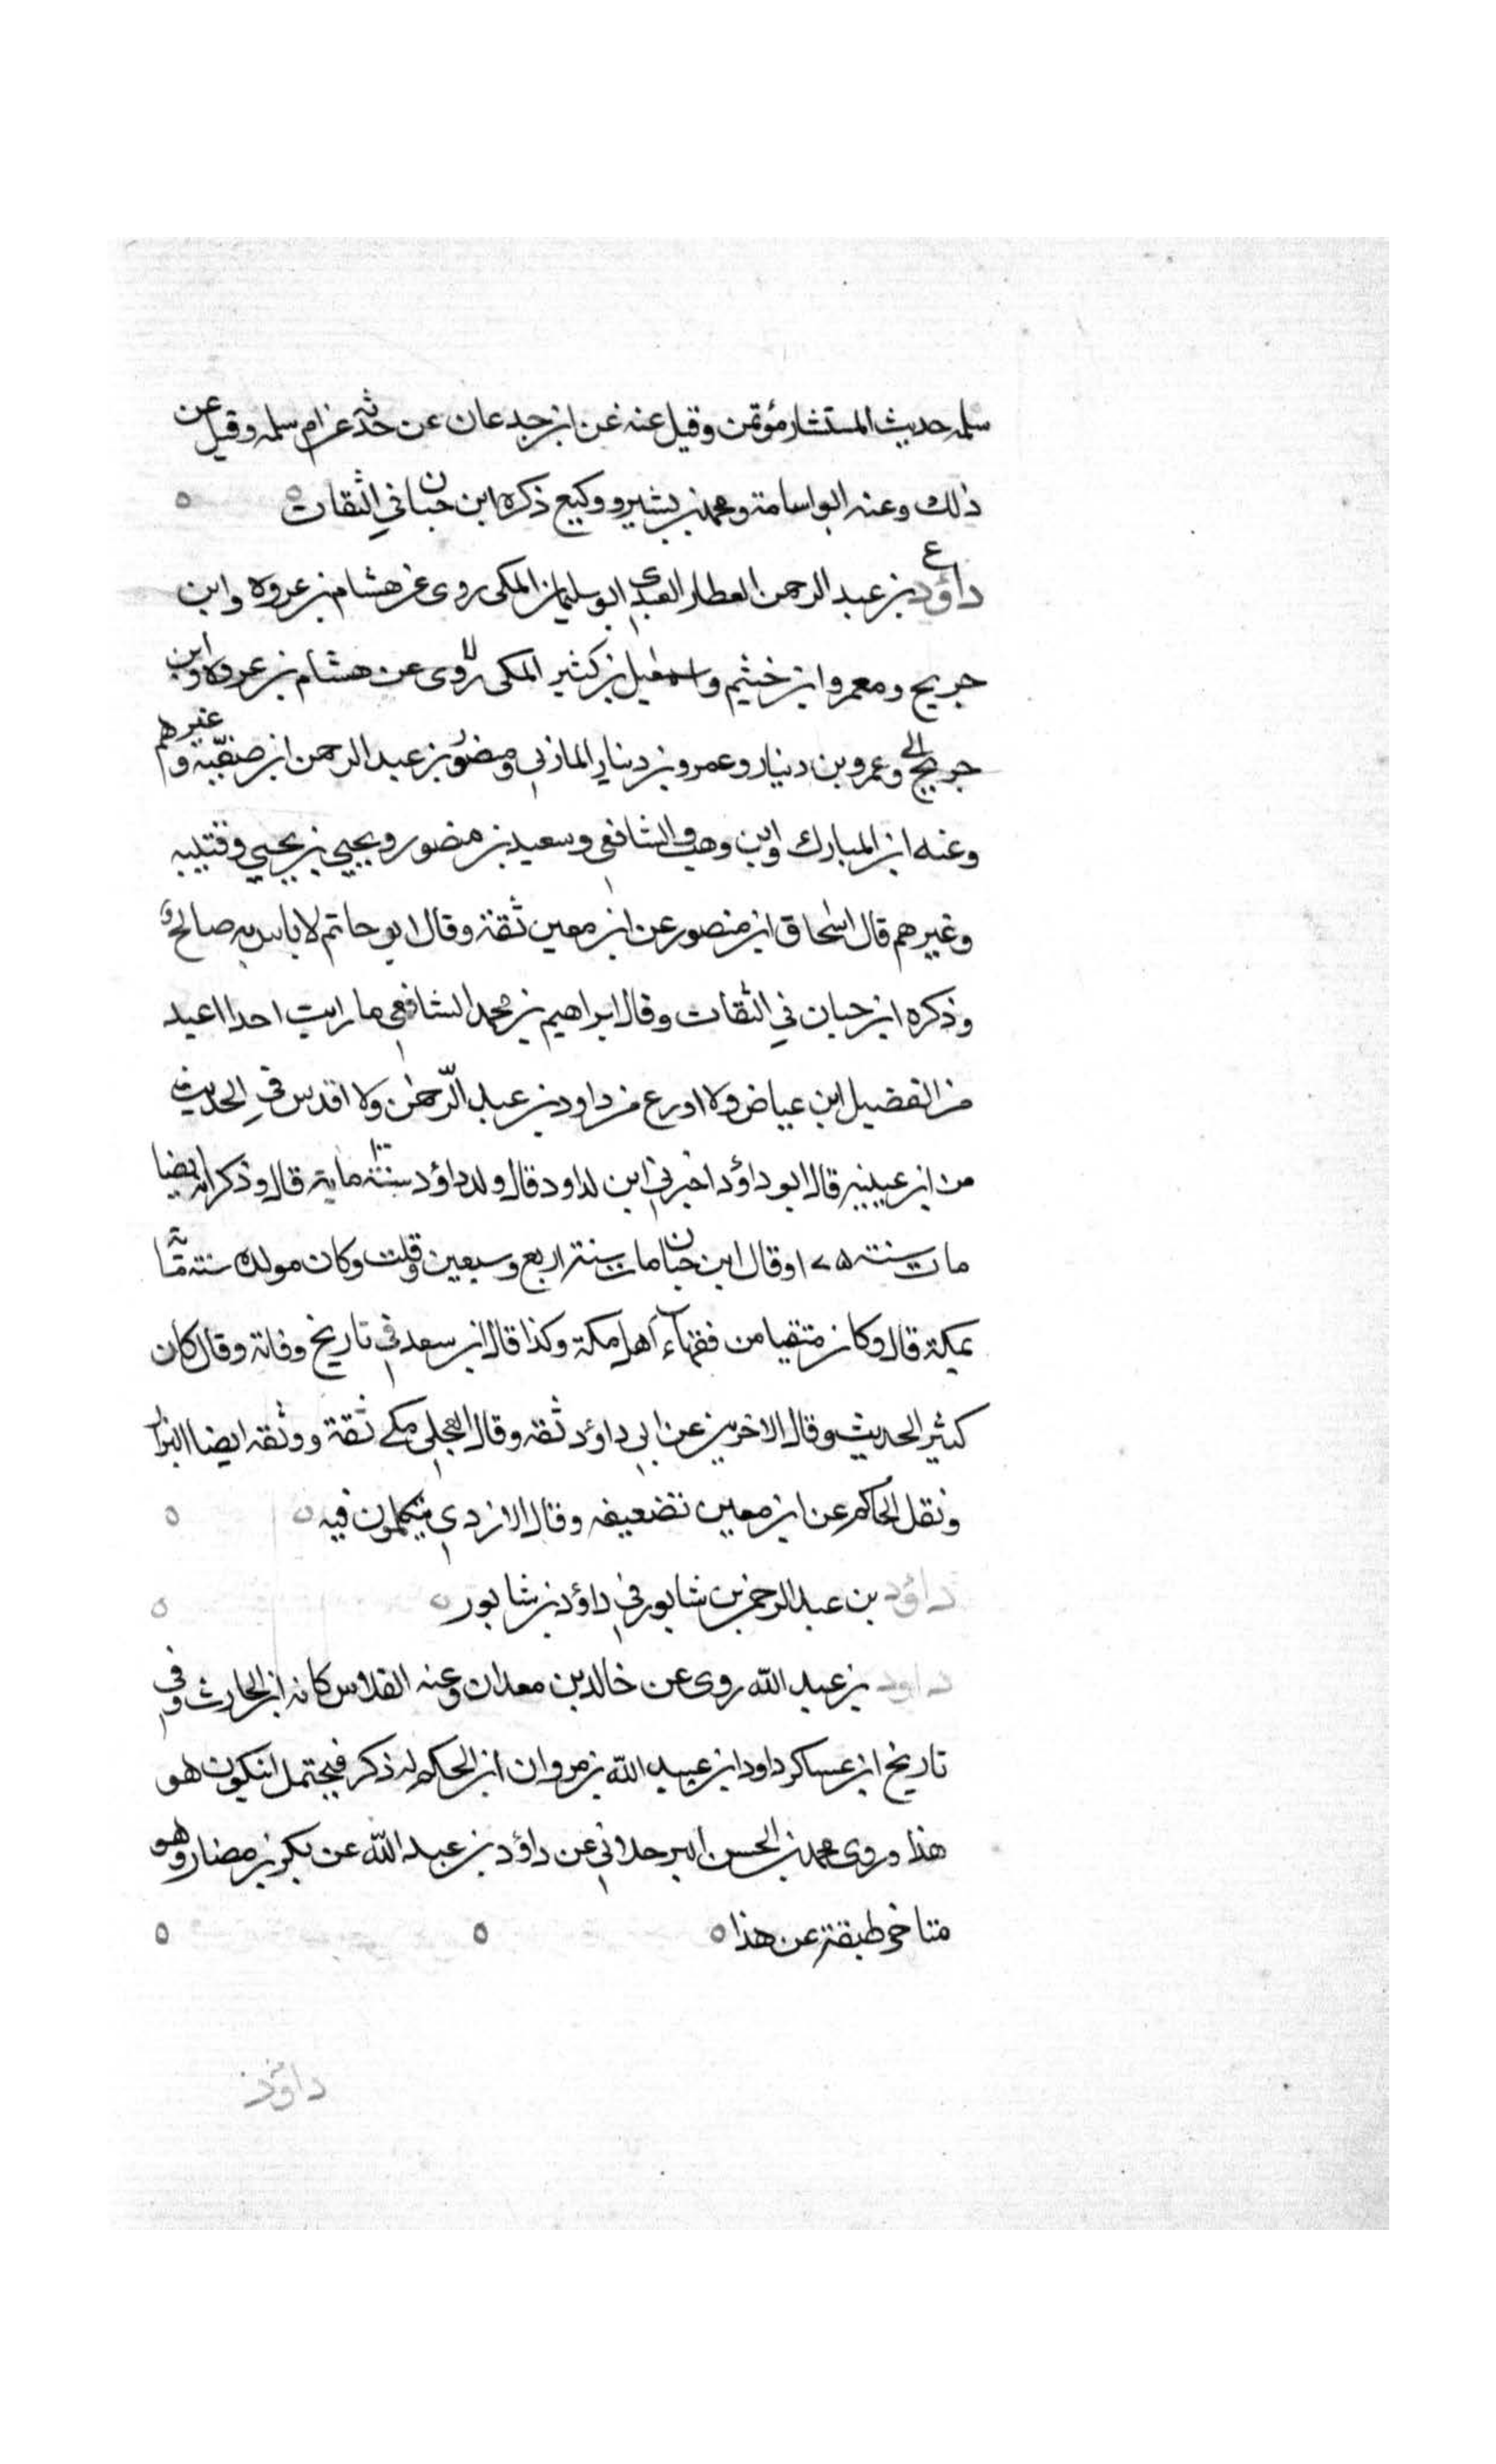 سلمه حديث المستشار مؤتمن وقيل عنه عن ابن جدعان عن جدته عن ام سلمه وقيل عن
ذلك وعنه ابو اسامة ومحمد بن بشير ووكيع ذكره ابن حبان في الثقات ٥ ٥
ع
داؤد بن عبد الرحمن العطار العبدي ابو سليمان المكي روى عن هشام بن عروة وابن
جريج ومعمر وابن خثيم واسمعيل بن كثير المكي روى عن هشام بن عروه وابن
جريج وعمرو بن دينار وعمرو بن دينار المازني ومنصور بن عبد الرحمن ابن صفيه وغيرهم
وعنه ابن المبارك وابن وهب والشافعي وسعيد بن منصور ويحيي بن يحيي وقتيبه
وغيرهم قال اسحاق ابن منصور عن ابن معين ثقة وقال ابو حاتم لا باس به صالح
وذكره ابن حبان في الثقات وقال ابراهيم بن محمد الشافعي ما رايت احدا اعبد
من الفضيل ابن عياض ولا اورع من داود بن عبد الرّحمن ولا اقدس في الحديث
من ابن عيينه قال ابو داؤد اخبرني ابن لداود قال ولد داؤد سنة ماية قال وذكر انه ايضا
مات سنة ١٧٥ وقال ابن حبان مات سنة اربع وسبعين وقلت وكان مولده سنة
بمكة قال وكان متقيا من فقهاء اهل مكة وكذا قال ابن سعد في تاريخ وفاته وقال كان
كثير الحديث وقال الاخرين عن ابي داؤد ثقه وقال العجلي مكي ثقة ووثقه ايضا البزار
ونقل الحاكم عن ابن معين تضعيفه وقال الازدي يتكلمون فيه ٥ ٥
داؤد بن عبد الرحمن بن شابور في داؤد بن شابور ٥ ٥
داود بن عبد الله روى عن خالد بن معدان وعنه الفلاس كانه ابن الحارث وفي
تاريخ ابن عساكر داود ابن عبيد الله بن مروان ابن الحكم له ذكر فيحتمل ان يكون هو
هذا وروى محمد بن الحسن البرجلاني عن داؤد بن عبد الله عن بكر بن مضار وهو
متاخر طبقة عن هذا ٥ ٥ ٥
داؤد